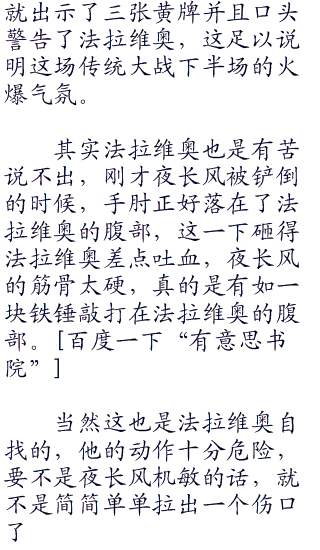 就出示了三张黄牌并且口头
警告了法拉维奥，这足以说
明这场传统大战下半场的火
爆气氛。
其实法拉维奥也是有苦
说不出，刚才夜长风被铲倒
的时候，手肘正好落在了法
拉维奥的腹部，这一下砸得
法拉维奥差点吐血，夜长风
的筋骨太硬，真的是有如一
块铁锤敲打在法拉维奥的腹
部。[百度一下“有意思书
院”]
当然这也是法拉维奥自
找的，他的动作十分危险，
要不是夜长风机敏的话，就
不是简简单单拉出一个伤口
了